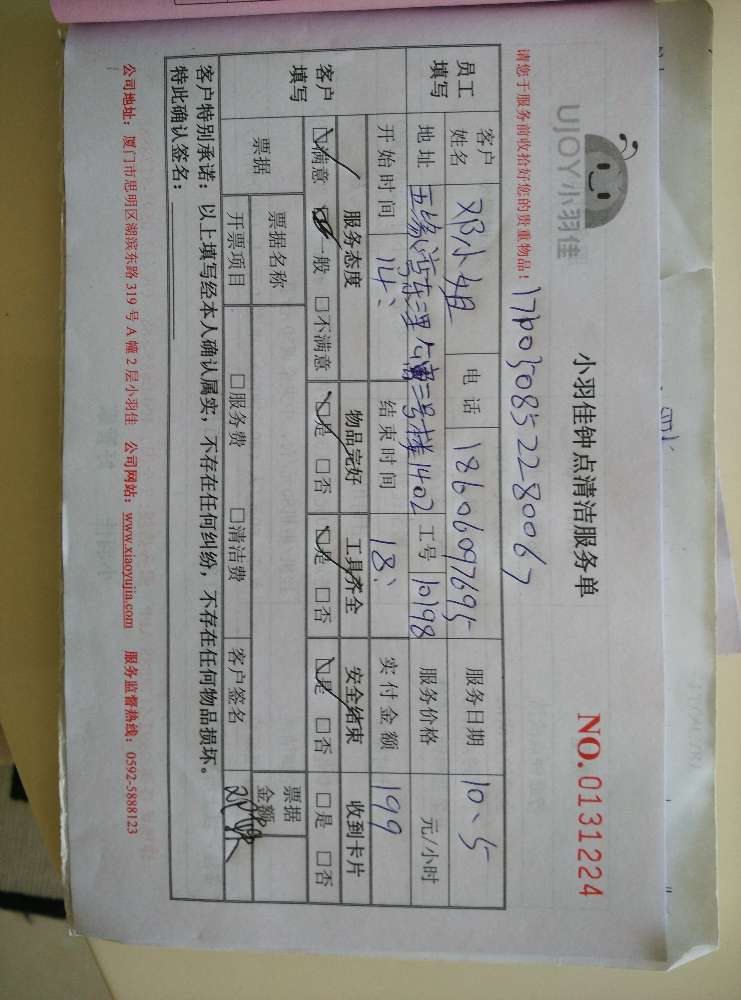 UJOY小羽佳
小羽佳钟点清洁服务单
NO. 0131224
请您于服务前收拾好您的贵重物品!
1760350852280067
员工填写
客户姓名 邓小姐 电话 18606097695 服务日期 10、5
地址 五缘湾东二里 三号楼1402 工号 10198 服务价格 元/小时
开始时间 14: 结束时间 18: 实付金额 199
客户填写
服务态度 物品完好 工具齐全 安全结束 收到卡片
☑满意 一般 □不满意 ☑是 □否 ☑是 □否 ☑是 □否 □是 □否
票据 票据名称 票据金额
开票项目 □服务费 □清洁费 客户签名
客户特别承诺:以上填写经本人确认属实,不存在任何纠纷,不存在任何物品损坏。
特此确认签名:
公司地址:厦门市思明区湖滨东路 319 号 A 幢 2 层小羽佳 公司网站:www.xiaoyujia.com 服务监督热线:0592-5888123